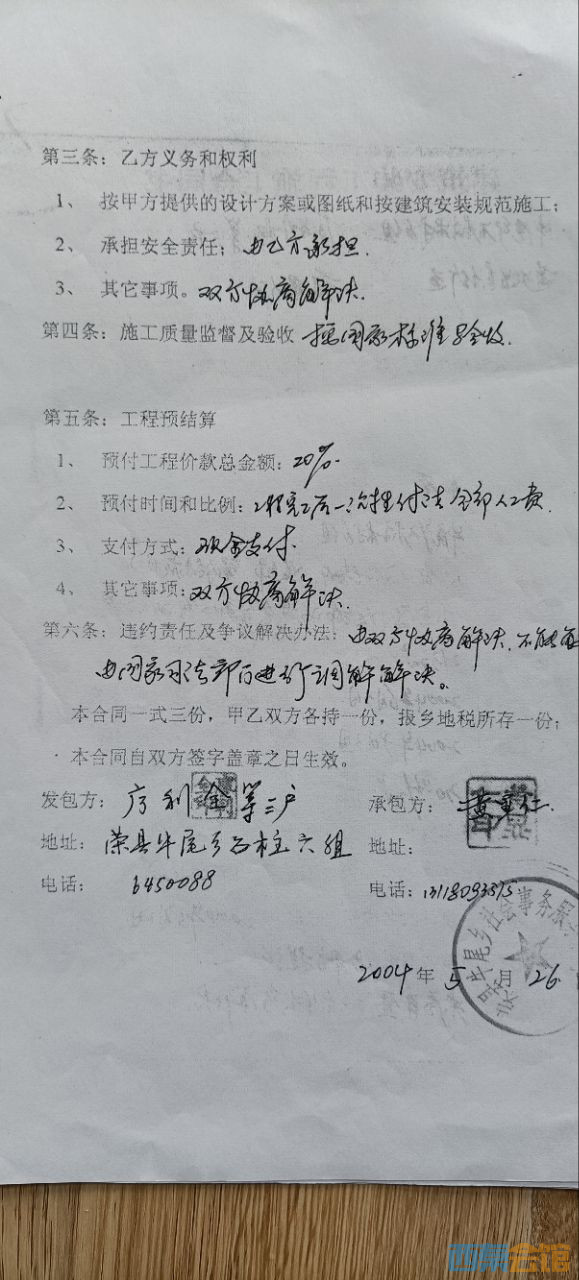 第三条：乙方义务和权利
1、 按甲方提供的设计方案或图纸和按建筑安装规范施工；
2、 承担安全责任；由乙方承担.
3、 其它事项。双方协商解决.
第四条：施工质量监督及验收 按国家标准验收.
第五条：工程预结算
1、 预付工程价款总金额：20%.
2、 预付时间和比例：工程完工后一次性付清全部人工费.
3、 支付方式：现金支付.
4、 其它事项：双方协商解决.
第六条：违约责任及争议解决办法：由双方协商解决.不能
由国家司法部门进行调解解决。
本合同一式三份，甲乙双方各持一份，报乡地税所存一份；
本合同自双方签字盖章之日生效。
发包方： 利金等三户
承包方：
地址： 荣县牛尾乡石柱六组
地址：
电话： 6450088
电话：
牛尾乡社会事务
2004年5月26
西祠会馆